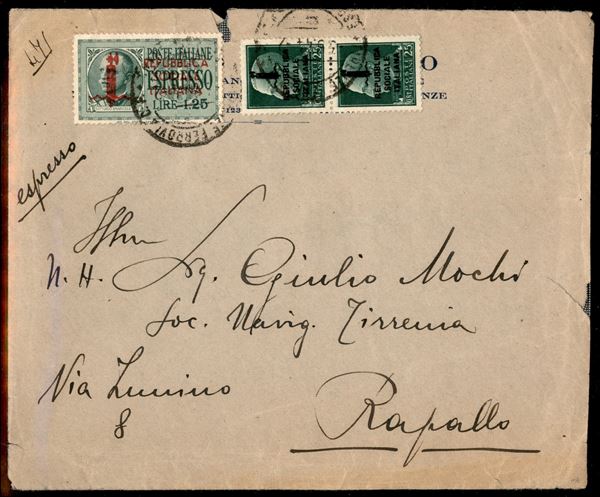 POSTE ITALIANE
REPUBBLICA
ESPRESSO
ITALIANA
LIRE 1,25
25 25
REPUBBLICA SOCIALE ITALIANA
REPUBBLICA SOCIALE ITALIANA
FERROVIA
espresso
N. H. Sg. Giulio Mochi
Soc. Navig. Tirrenia
Via
8
Rapallo